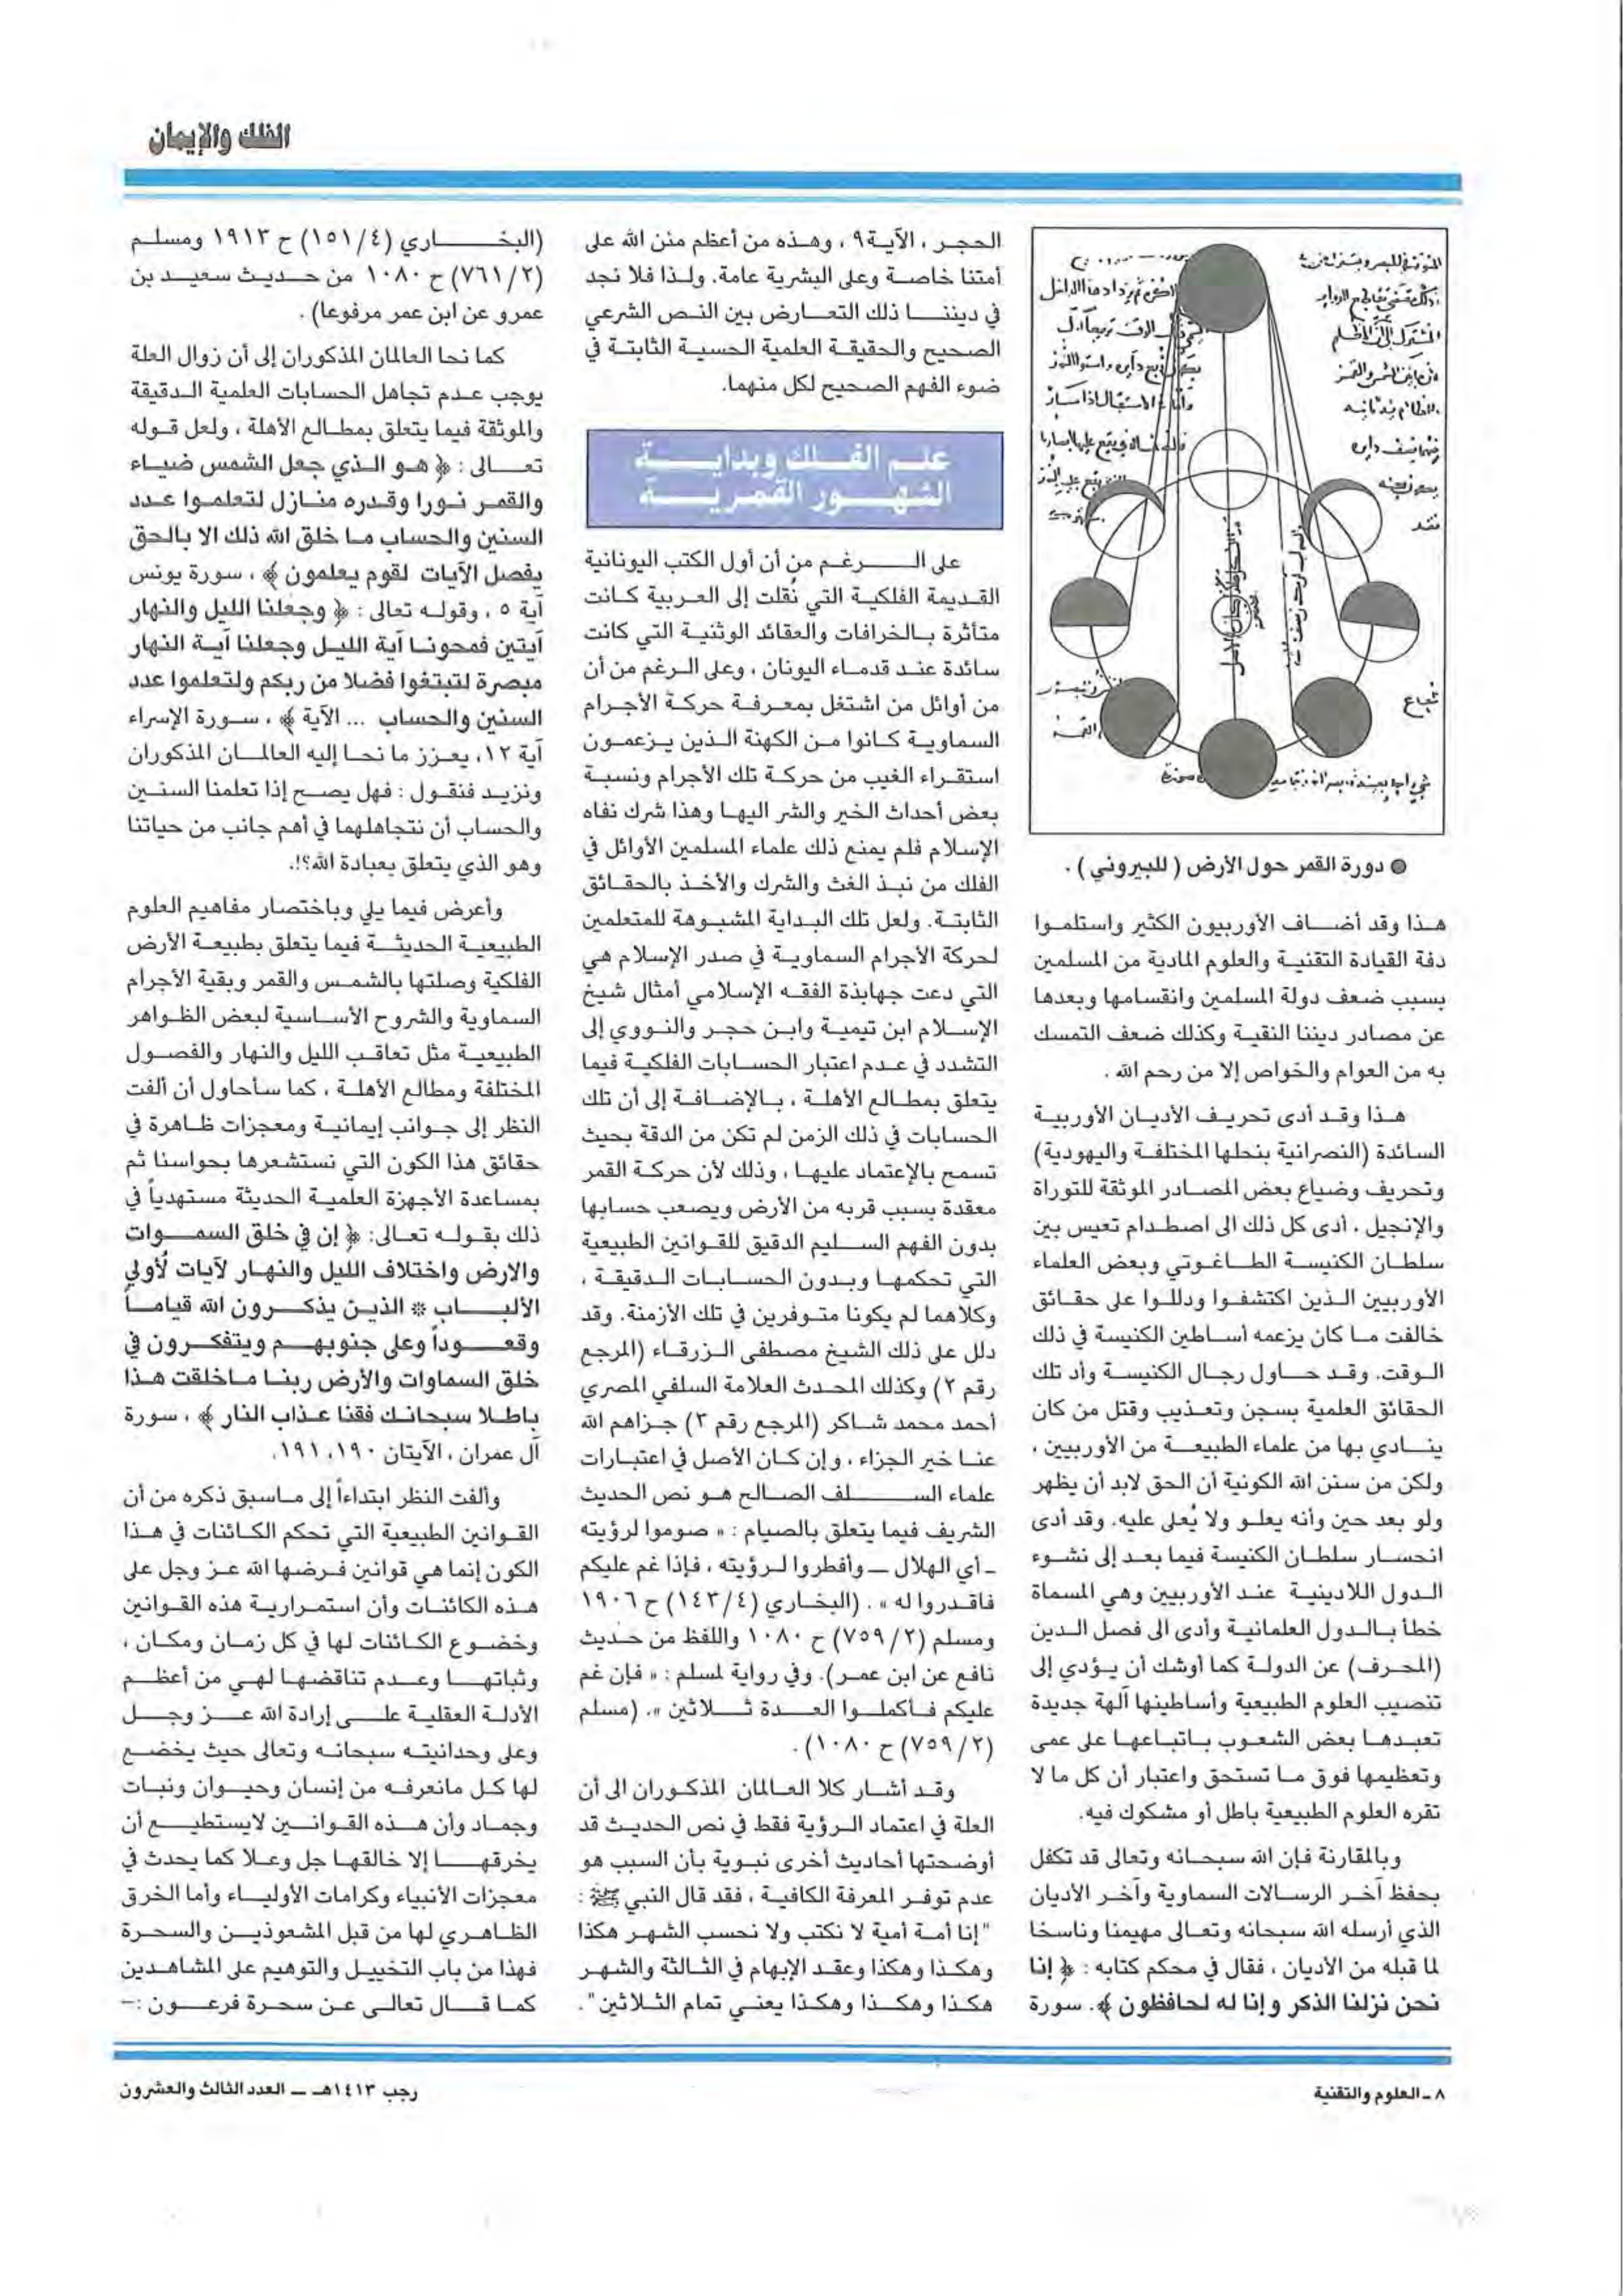 الفلك والإيمان
● دورة القمر حول الأرض ( للبيروني ) .
هـذا وقد أضـاف الأوربيون الكثير واستلمـوا
دفة القيادة التقنيـة والعلوم المادية من المسلمين
بسبب ضعف دولة المسلمين وانقسامها وبعدها
عن مصادر ديننا النقية وكذلك ضعف التمسك
به من العوام والخواص إلا من رحم الله .
هـذا وقـد أدى تحريـف الأديـان الأوربيـة
السائدة (النصرانية بنحلها المختلفـة واليهودية)
وتحريف وضياع بعض المصـادر الموثقة للتوراة
والإنجيل ، أدى كل ذلك الى اصطـدام تعيس بين
سلطـان الكنيسـة الطـاغـوتي وبعض العلماء
الأوربيين الـذين اكتشفـوا ودللـوا على حقـائق
خالفت مـا كان يزعمه أسـاطين الكنيسة في ذلك
الـوقت. وقـد حـاول رجـال الكنيسـة وأد تلك
الحقائق العلمية بسجن وتعـذيب وقتل من كان
ينـادي بهـا من علماء الطبيعـة من الأوربيين ،
ولكن من سنن الله الكونية أن الحق لابد أن يظهر
ولو بعد حين وأنه يعلـو ولا يُعلى عليه. وقد أدى
انحسـار سلطـان الكنيسة فيما بعـد إلى نشـوء
الـدول اللادينيـة عنـد الأوربيين وهي المسماة
خطأ بـالـدول العلمانيـة وأدى الى فصل الـدين
(المحرف) عن الدولـة كما أوشك أن يـؤدي إلى
تنصيب العلوم الطبيعية وأساطينها آلهة جديدة
تعبـدهـا بعض الشعـوب بـاتبـاعهـا على عمى
وتعظيمها فوق مـا تستحق واعتبار أن كل ما لا
تقره العلوم الطبيعية باطل أو مشكوك فيه.
وبالمقارنة فإن الله سبحـانه وتعالى قد تكفل
بحفظ آخـر الرسـالات السماوية وآخـر الأديان
الذي أرسله الله سبحانه وتعـالى مهيمنا وناسخا
لما قبله من الأديان ، فقال في محكم كتابه : ﴿ إنا
نحن نزلنا الذكر وإنا له لحافظون ﴾. سورة
الحجـر ، الآيـة٩ ، وهـذه من أعظم منن الله على
أمتنا خاصـة وعلى البشرية عامة. ولـذا فلا نجد
في ديننـا ذلك التعـارض بين النـص الشرعي
الصحيح والحقيقـة العلمية الحسيـة الثابتـة في
ضوء الفهم الصحيح لكل منهما.
علـم الفـلك وبدايـة
الشهـور القمريـة
على الـرغـم من أن أول الكتب اليونانية
القـديمة الفلكيـة التي نُقلت إلى العـربية كـانت
متأثرة بـالخرافات والعقائد الوثنيـة التي كانت
سائدة عنـد قدمـاء اليونان ، وعلى الـرغم من أن
من أوائل من اشتغل بمعـرفـة حركـة الأجـرام
السماويـة كـانوا مـن الكهنة الـذين يـزعمـون
استقـراء الغيب من حركـة تلك الأجرام ونسبـة
بعض أحداث الخير والشر اليهـا وهذا شرك نفاه
الإسـلام فلم يمنع ذلك علماء المسلمين الأوائل في
الفلك من نبـذ الغث والشرك والأخـذ بالحقـائق
الثابتـة. ولعل تلك البـداية المشبـوهة للمتعلمين
لحركة الأجرام السماويـة في صدر الإسـلام هي
التي دعت جهابذة الفقـه الإسلامي أمثال شيخ
الإسـلام ابن تيميـة وابـن حجـر والنـووي إلى
التشدد في عـدم اعتبار الحسـابات الفلكيـة فيما
يتعلق بمطـالع الأهلـة ، بـالإضـافـة إلى أن تلك
الحسابات في ذلك الزمن لم تكن من الدقة بحيث
تسمح بالإعتماد عليهـا ، وذلك لأن حركـة القمر
معقدة بسبب قربه من الأرض ويصعب حسابها
بدون الفهم السـليم الدقيق للقـوانين الطبيعية
التي تحكمهـا وبـدون الحسـابـات الـدقيقـة ،
وكلاهما لم يكونا متـوفرين في تلك الأزمنة. وقد
دلل على ذلك الشيخ مصطفى الـزرقـاء (المرجع
رقم ٢) وكذلك المحـدث العلامة السلفي المصري
أحمد محمد شـاكر (المرجع رقم ٣) جـزاهم الله
عنـا خير الجزاء ، وإن كـان الأصل في اعتبـارات
علماء السـلف الصـالح هـو نص الحديث
الشريف فيما يتعلق بالصيام : « صوموا لرؤيته
ـ أي الهلال ـ وأفطروا لـرؤيته ، فإذا غم عليكم
فاقـدروا له » . (البخـاري (٤/ ١٤٣) ح ١٩٠٦
ومسلم (٢/ ٧٥٩) ح ١٠٨٠ واللفظ من حـديث
نافع عن ابن عمـر). وفي رواية لمسلم : « فإن غم
عليكم فـأكملـوا العـدة ثـلاثين ». (مسلم
(٢/ ٧٥٩) ح ١٠٨٠) .
وقـد أشـار كلا العـالمان المذكـوران الى أن
العلة في اعتماد الـرؤية فقط في نص الحديـث قد
أوضحتها أحاديث أخرى نبـوية بأن السبب هو
عدم توفـر المعرفة الكافيـة ، فقد قال النبي ﷺ :
"إنا أمـة أمية لا نكتب ولا نحسب الشهـر هكذا
وهكـذا وهكذا وعقـد الإبهام في الثـالثة والشهـر
هكـذا وهكـذا وهكـذا يعنـي تمام الثـلاثين".
(البخـاري (٤/ ١٥١) ح ١٩١٣ ومسلـم
(٢/ ٧٦١) ح ١٠٨٠ من حـديث سعيـد بن
عمرو عن ابن عمر مرفوعا) .
كما نحا العالمان المذكوران إلى أن زوال العلة
يوجب عـدم تجاهل الحسابات العلمية الـدقيقة
والموثقة فيما يتعلق بمطـالع الأهلة ، ولعل قـوله
تعـالى : ﴿ هـو الـذي جعل الشمس ضيـاء
والقمر نـورا وقـدره منـازل لتعلمـوا عـدد
السنين والحساب مـا خلق الله ذلك الا بالحق
يفصل الآيات لقوم يعلمون ﴾ ، سورة يونس
آية ٥ ، وقولـه تعالى : ﴿ وجعلنا الليل والنهار
آيتين فمحونـا آية الليـل وجعلنا آيـة النهار
مبصرة لتبتغوا فضلا من ربكم ولتعلموا عدد
السنين والحساب ... الآية ﴾ ، سـورة الإسراء
آية ١٢، يعـزز ما نحـا إليه العالمـان المذكوران
ونزيـد فنقـول : فهل يصـح إذا تعلمنا السنـين
والحساب أن نتجاهلهما في أهم جانب من حياتنا
وهو الذي يتعلق بعبادة الله؟!.
وأعرض فيما يلي وباختصار مفاهيم العلوم
الطبيعيـة الحديثـة فيما يتعلق بطبيعـة الأرض
الفلكية وصلتها بالشمـس والقمر وبقية الأجرام
السماوية والشروح الأسـاسية لبعض الظـواهر
الطبيعيـة مثل تعاقـب الليل والنهار والفصـول
المختلفة ومطالع الأهلـة ، كما سـأحاول أن ألفت
النظر إلى جـوانب إيمانيـة ومعجزات ظـاهرة في
حقائق هذا الكون التي نستشعرها بحواسنا ثم
بمساعدة الأجهزة العلميـة الحديثة مستهدياً في
ذلك بقـولـه تعـالى: ﴿ إن في خلق السمـوات
والارض واختلاف الليل والنهـار لآيات لأولي
الألبـاب * الذيـن يذكـرون الله قيامـاً
وقعـوداً وعلى جنوبهـم ويتفكـرون في
خلق السماوات والأرض ربنـا مـاخلقت هـذا
باطـلا سبحانـك فقنا عـذاب النار ﴾ ، سورة
آل عمران ، الآيتان ١٩٠، ١٩١.
وألفت النظر ابتداءاً إلى مـاسبق ذكره من أن
القـوانين الطبيعية التي تحكم الكـائنات في هـذا
الكون إنما هي قوانين فـرضها الله عـز وجل على
هـذه الكائنـات وأن استمـراريـة هذه القـوانين
وخضـوع الكـائنات لها في كل زمـان ومكـان ،
وثباتهـا وعـدم تناقضهـا لهـي من أعظـم
الأدلـة العقليـة علـى إرادة الله عـز وجـل
وعلى وحدانيتـه سبحانـه وتعالى حيث يخضـع
لها كـل مانعرفـه من إنسان وحيـوان ونبـات
وجمـاد وأن هـذه القـوانـين لايستطيـع أن
يخرقهـا إلا خالقهـا جل وعـلا كما يحدث في
معجزات الأنبياء وكرامات الأوليـاء وأما الخرق
الظاهـري لها من قبل المشعوذيـن والسحـرة
فهذا من باب التخييـل والتوهيم على المشاهـدين
كمـا قـال تعالـى عـن سحـرة فرعـون :–
٨ ـ العلوم والتقنية
رجب ١٤١٣هـ ـ العدد الثالث والعشرون